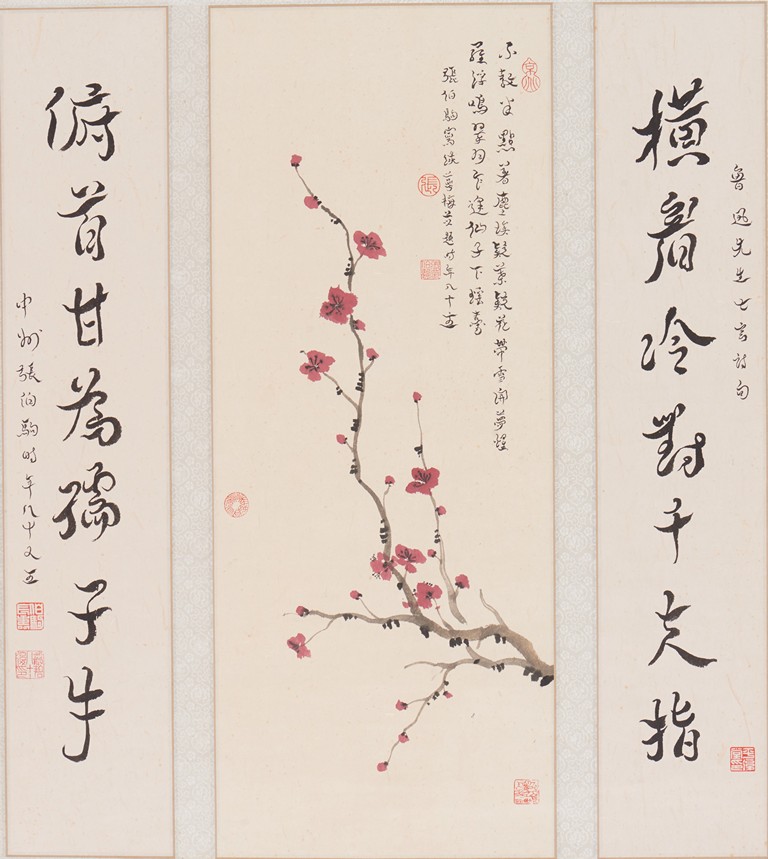 魯迅先生七言詩句
橫眉冷對千夫指
不教半點著塵埃疑疑花帶雪開夢醒
羅浮鳴翠羽逢仙子下瑤臺
張伯駒寫梅並題時年八十五
張
俯首甘為孺子牛
中州張伯駒時年八十又五